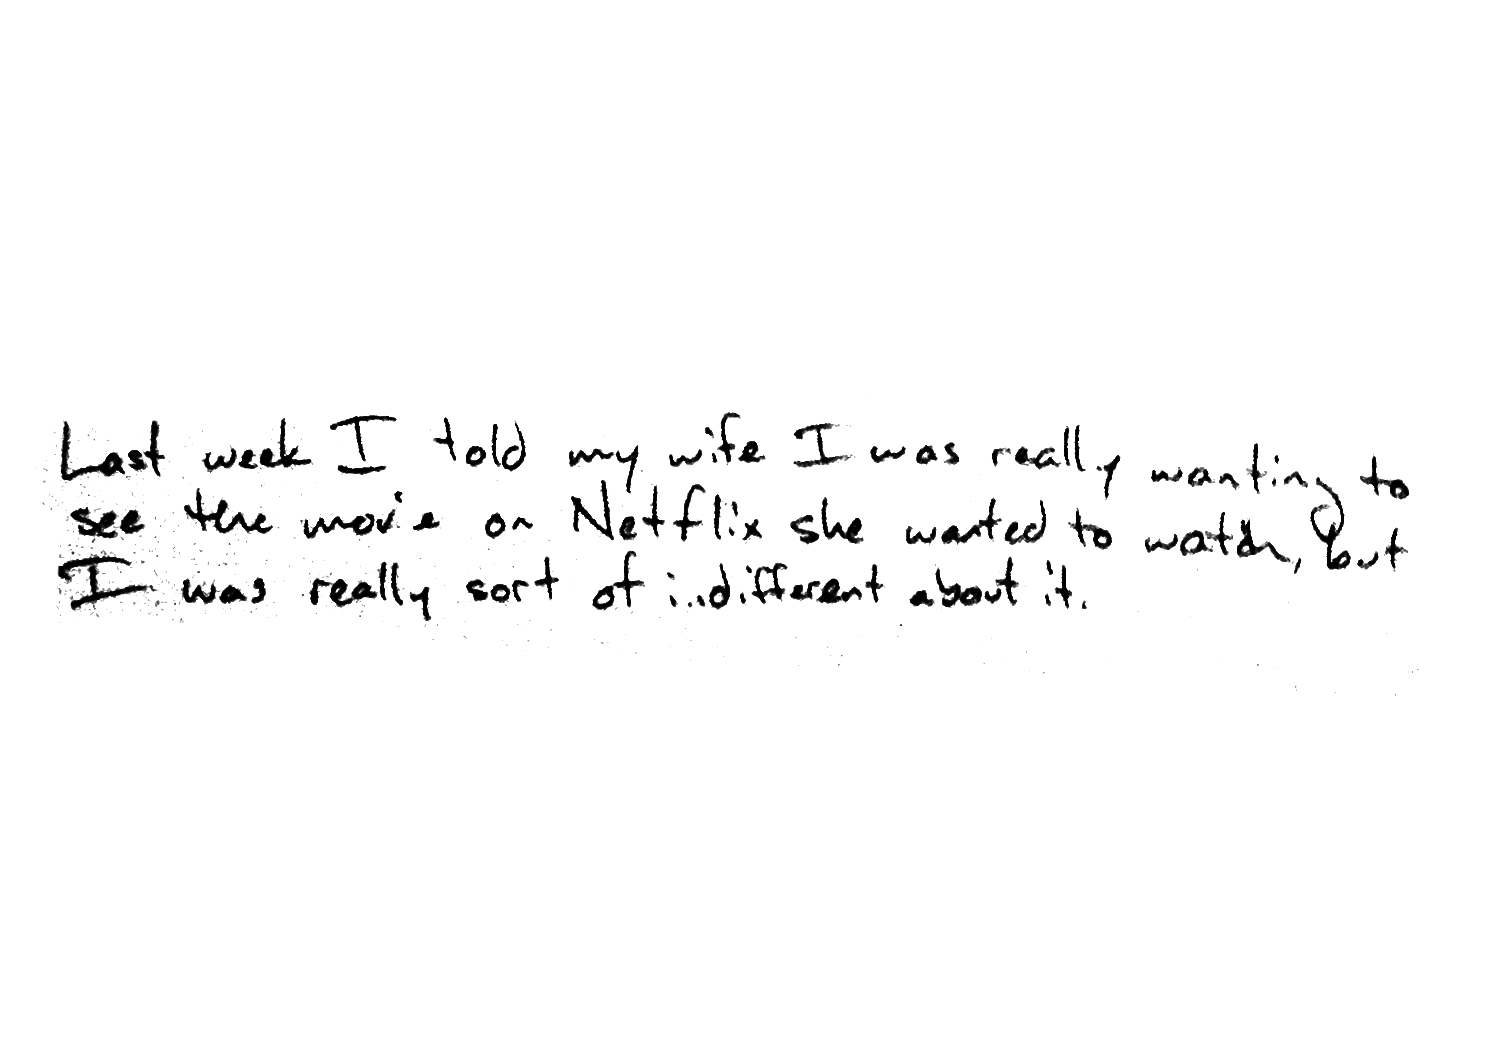 Last week I told my wife I was really wanting to
see the movie on Netflix she wanted to watch, but
I was really sort of indifferent about it.